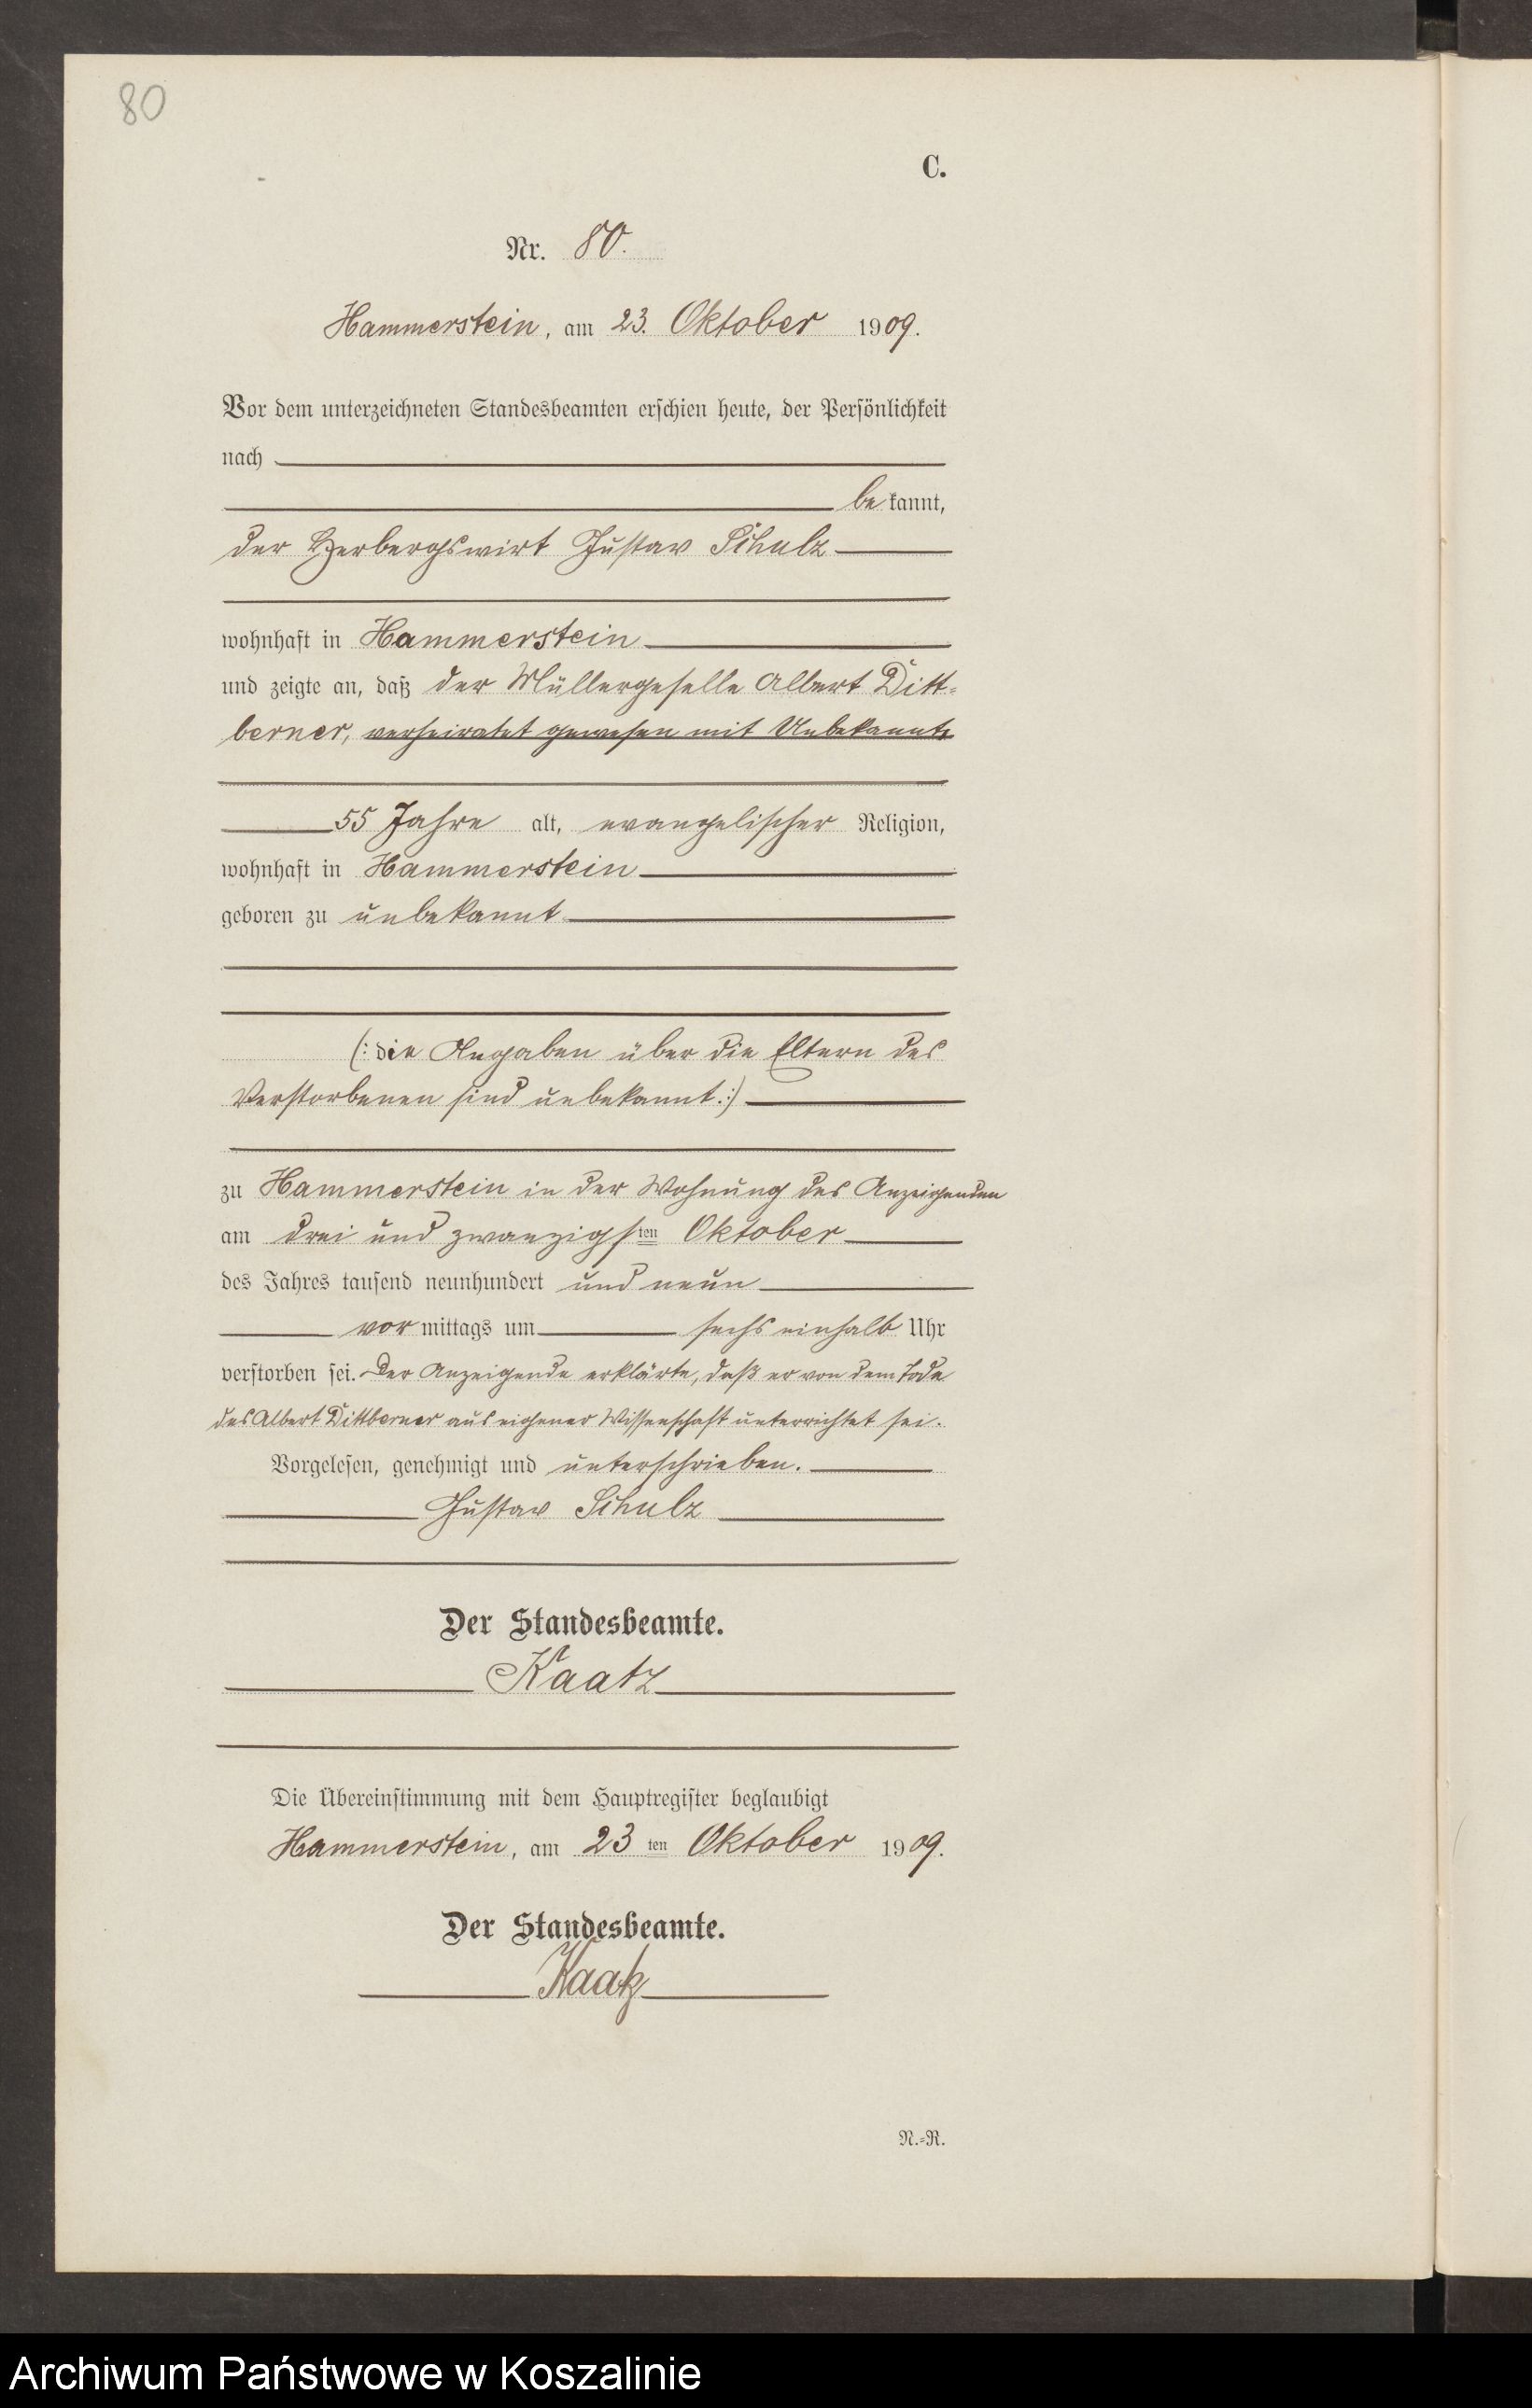 80
C.
Nr. 80.
Hammerstein, am 23. Oktober 1909.
Vor dem unterzeichneten Standesbeamten erschien heute, der Persönlichkeit
nach
bekannt,
der Herbergswirt Gustav Schulz
wohnhaft in Hammerstein
und zeigte an, daß der Müllergeselle Albert Ditt-
berner, verheiratet gewesen mit Unbekannt
55 Jahre alt, evangelischer Religion,
wohnhaft in Hammerstein
geboren zu unbekannt
(: die Angaben über die Eltern des
Verstorbenen sind unbekannt :)
zu Hammerstein in der Wohnung des Anzeigenden
am drei und zwanzigsten Oktober
des Jahres tausend neunhundert und neun
vormittags um sechs einhalb Uhr
verstorben sei. Der Anzeigende erklärte, daß er von dem Tode
des Albert Dittberner aus eigener Wissenschaft unterrichtet sei.
Vorgelesen, genehmigt und unterschrieben.
Gustav Schulz
Der Standesbeamte.
Kaatz
Die Übereinstimmung mit dem Hauptregister beglaubigt
Hammerstein, am 23ten Oktober 1909.
Der Standesbeamte.
Kaatz
N.=R.
Archiwum Państwowe w Koszalinie